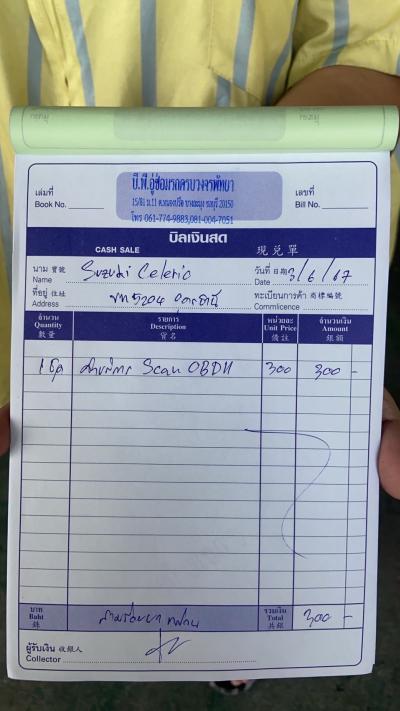 บี.พี.อู่ซ่อมรถครบวงจรพัทยา
15/81 ม.11 ต.หนองปรือ บางละมุง ชลบุรี 20150
โทร 061-774-9883,081-004-7051
เล่มที่
Book No.
เลขที่
Bill No.
บิลเงินสด
CASH SALE 現兌單
นาม 寶號
Name Suzuki Celerio
วันที่ 日期
Date 3/6/67
ที่อยู่ 住址
Address 5204 อุดรธานี
ทะเบียนการค้า 商標編號
Commlicence
จำนวน รายการ หน่วยละ จำนวนเงิน
Quantity Description Unit Price Amount
數量 貨名 備註 銀額
1 ชุด ค่าบริการ Scan OBDII 300 300 -
บาท
Baht
銖
สามร้อยบาทถ้วน
รวมเงิน
Total
共銀
300 -
ผู้รับเงิน 收銀人
Collector